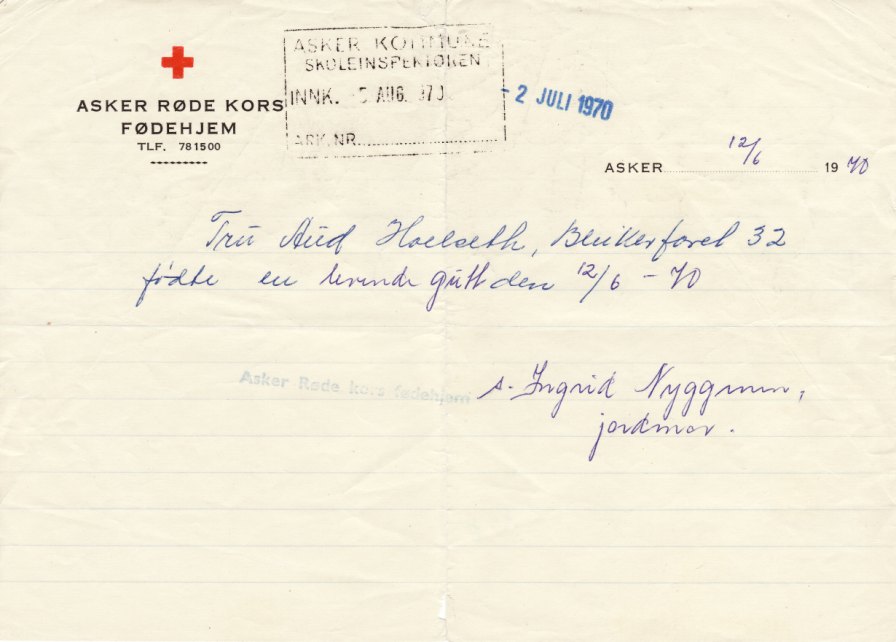 ASKER RØDE KORS
FØDEHJEM
TLF. 781500
ASKER KOMMUNE
SKOLEINSPEKTØREN
INNK. 5 AUG. 1970
ARK.NR.
- 2 JULI 1970
ASKER 12/6 1970
Fru Aud Hoelseth, Bleikerfaret 32
fødte en levende gutt den 12/6 - 70
Asker Røde kors fødehjem
s. Ingrid
jordmor.